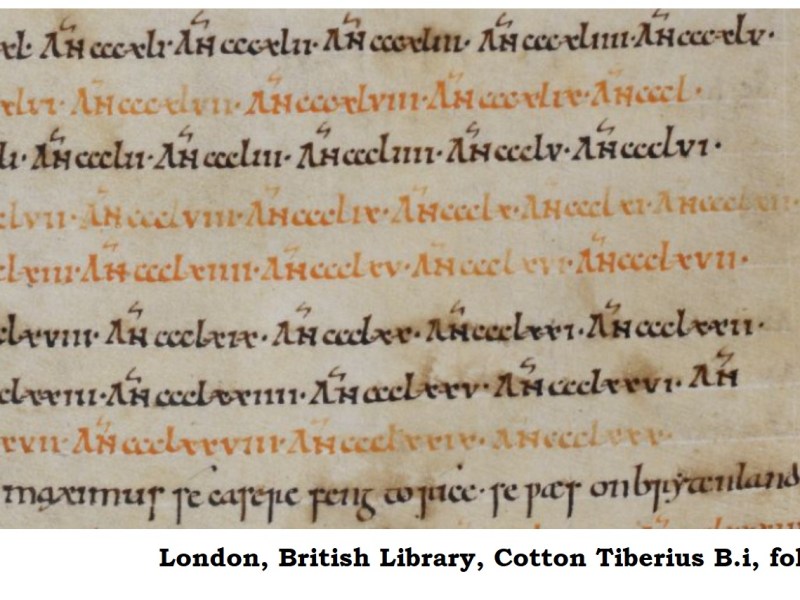 xl· AÑ cccxli· AÑ cccxlii· AÑ cccxliii· AÑ cccxliiii· AÑ cccxlv·
xlvi· AÑ cccxlvii· AÑ cccxlviii· AÑ cccxlix· AÑ cccl·
li· AÑ ccclii· AÑ cccliii· AÑ cccliiii· AÑ ccclv· AÑ ccclvi·
clvii· AÑ ccclviii· AÑ ccclix· AÑ ccclx· AÑ ccclxi· AÑ ccclxii·
clxiii· AÑ ccclxiiii· AÑ ccclxv· AÑ ccclxvi· AÑ ccclxvii·
clxviii· AÑ ccclxix· AÑ ccclxx· AÑ ccclxxi· AÑ ccclxxii·
clxxiii· AÑ ccclxxiiii· AÑ ccclxxv· AÑ ccclxxvi· AÑ
xxvii· AÑ ccclxxviii· AÑ ccclxxix· AÑ ccclxxx·
maximus se casere feng to rice· se ƿæs on brytænland
London, British Library, Cotton Tiberius B.i, fol